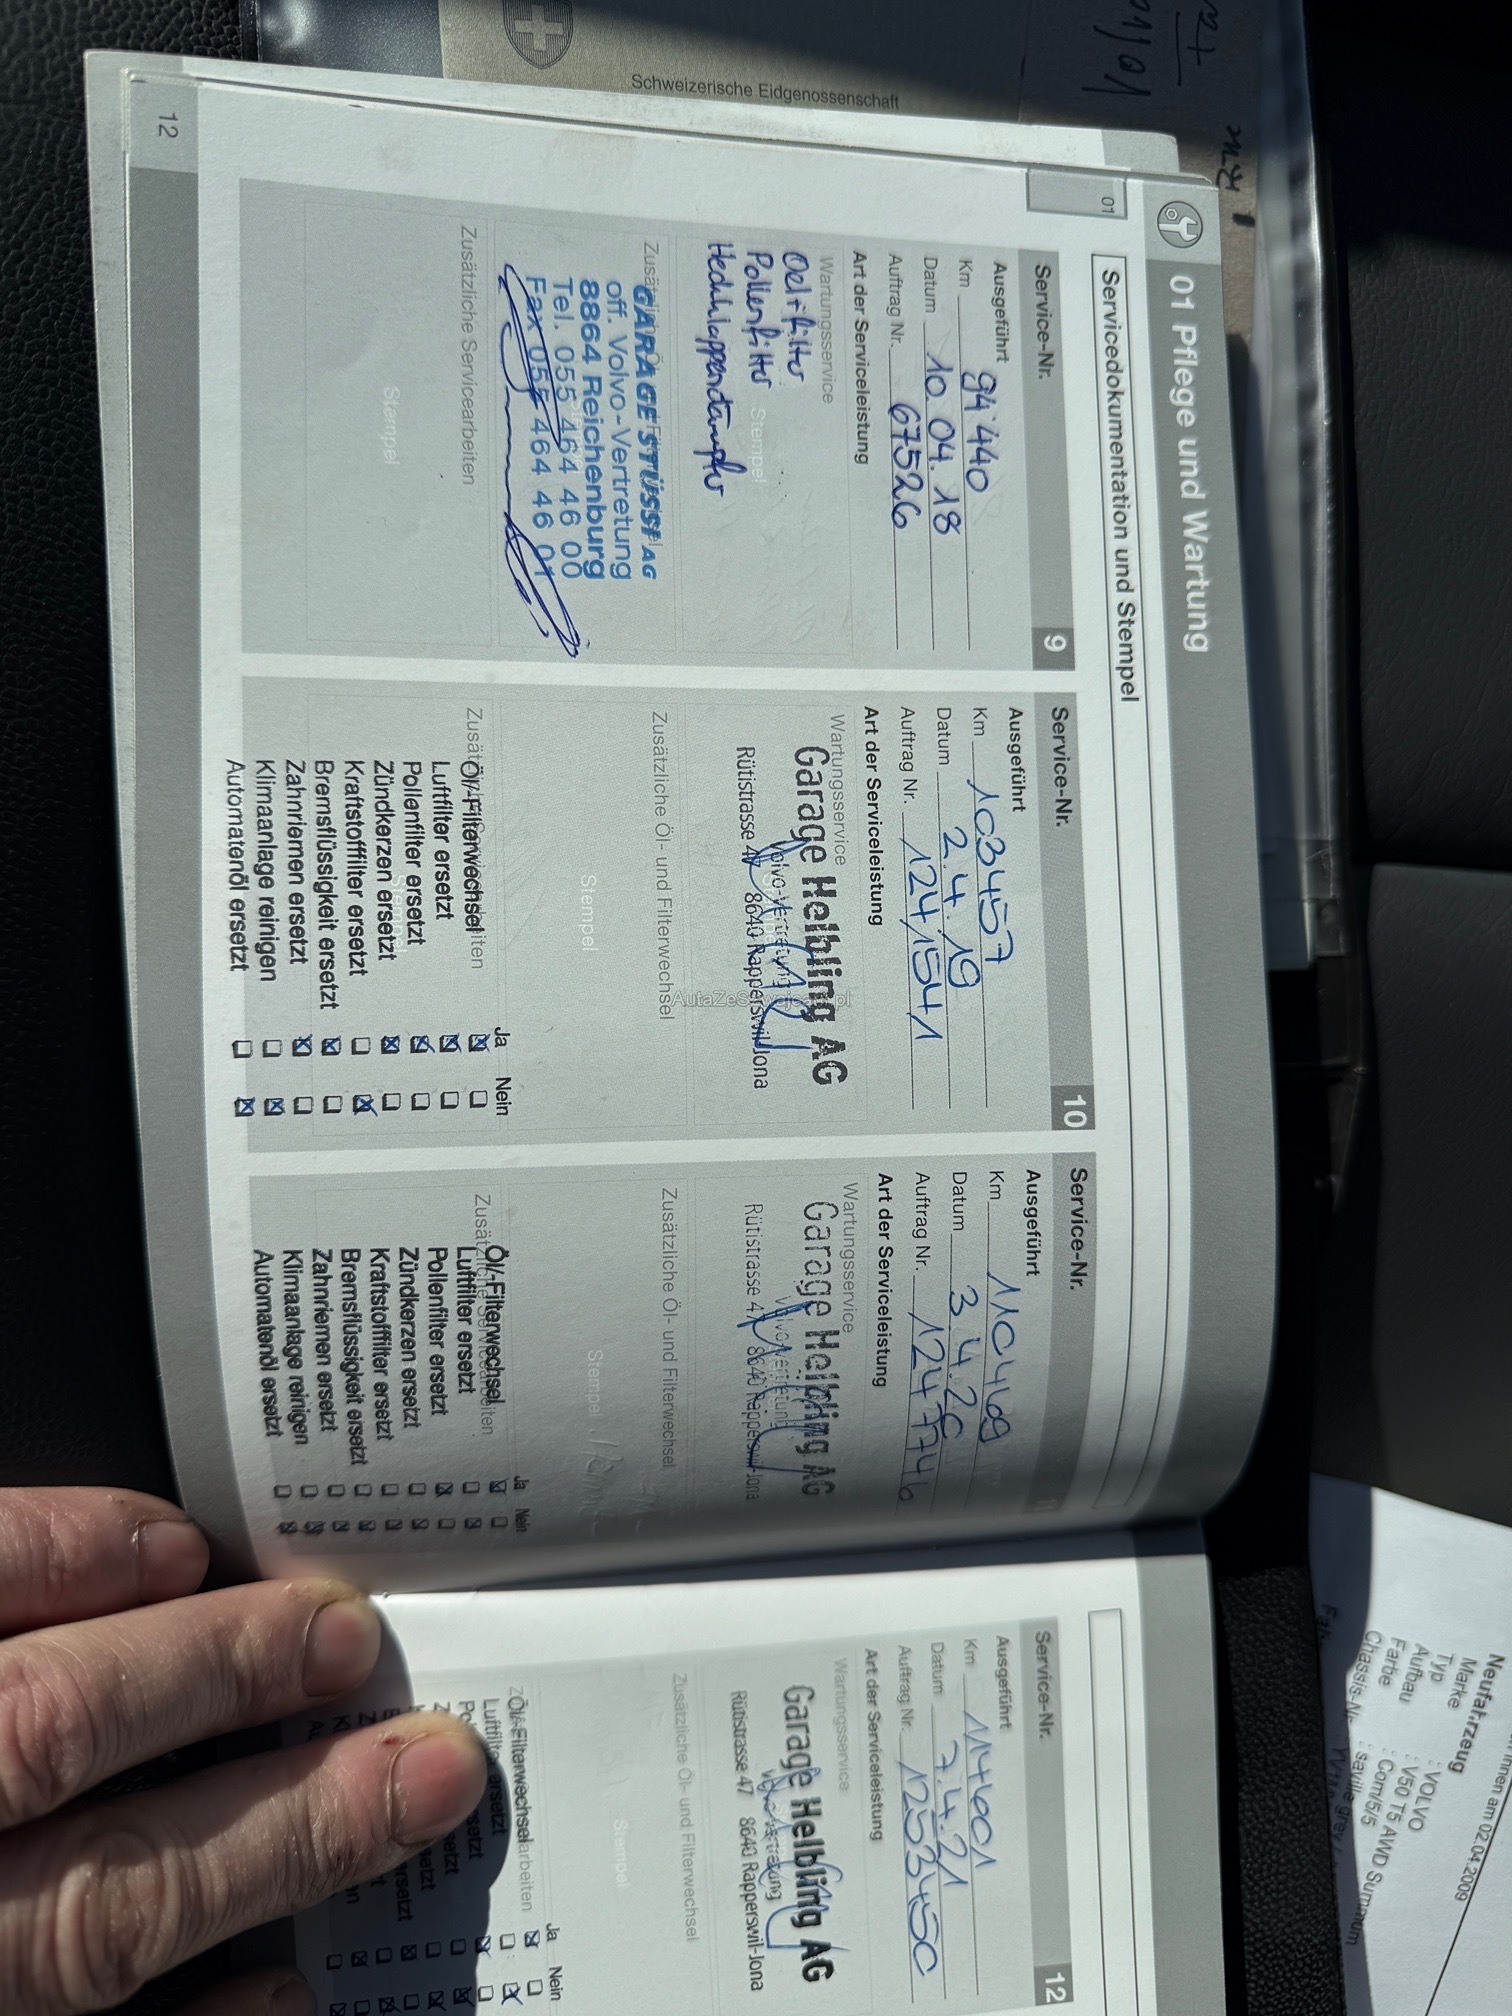 Schweizerische Eidgenossenschaft
01 Pflege und Wartung
01
Servicedokumentation und Stempel
Service-Nr. 9
Ausgeführt
Km 94'440
Datum 10.04.18
Auftrag Nr. 67526
Art der Serviceleistung
Wartungsservice
Oel + Filter
Pollenfilter
Heckklappendämpfer
Stempel
GARAGE STÜSSI AG
off. Volvo-Vertretung
8864 Reichenburg
Tel. 055 464 46 00
Fax 055 464 46 01
Zusätzliche Servicearbeiten
Stempel
Service-Nr. 10
Ausgeführt
Km 103457
Datum 2.4.19
Auftrag Nr. 124'1541
Art der Serviceleistung
Wartungsservice
Garage Helbling AG
Volvo-Vertretung
Rütistrasse 47 8640 Rapperswil-Jona
Zusätzliche Öl- und Filterwechsel
Stempel
Ja Nein
Öl/-Filterwechsel
Luftfilter ersetzt
Pollenfilter ersetzt
Zündkerzen ersetzt
Kraftstofffilter ersetzt
Bremsflüssigkeit ersetzt
Zahnriemen ersetzt
Klimaanlage reinigen
Automatenöl ersetzt
Service-Nr. 11
Ausgeführt
Km 110469
Datum 3.4.20
Auftrag Nr. 1247746
Art der Serviceleistung
Wartungsservice
Garage Helbling AG
Volvo-Vertretung
Rütistrasse 47 8640 Rapperswil-Jona
Zusätzliche Öl- und Filterwechsel
Stempel
Ja Nein
Öl/-Filterwechsel
Luftfilter ersetzt
Pollenfilter ersetzt
Zündkerzen ersetzt
Kraftstofffilter ersetzt
Bremsflüssigkeit ersetzt
Zahnriemen ersetzt
Klimaanlage reinigen
Automatenöl ersetzt
12
Service-Nr. 12
Ausgeführt
Km 114601
Datum 7.4.21
Auftrag Nr. 1253450
Art der Serviceleistung
Wartungsservice
Garage Helbling AG
Volvo-Vertretung
Rütistrasse 47 8640 Rapperswil-Jona
Zusätzliche Öl- und Filterwechsel
Stempel
Ja Nein
Öl/-Filterwechsel
ersetzt
Ihnen am 02.04.2009
Neufahrzeug
Marke : VOLVO
Typ : V50 T5 AWD Summum
Aufbau : Com/5/5
Farbe : saville grey
Chassis-Nr.